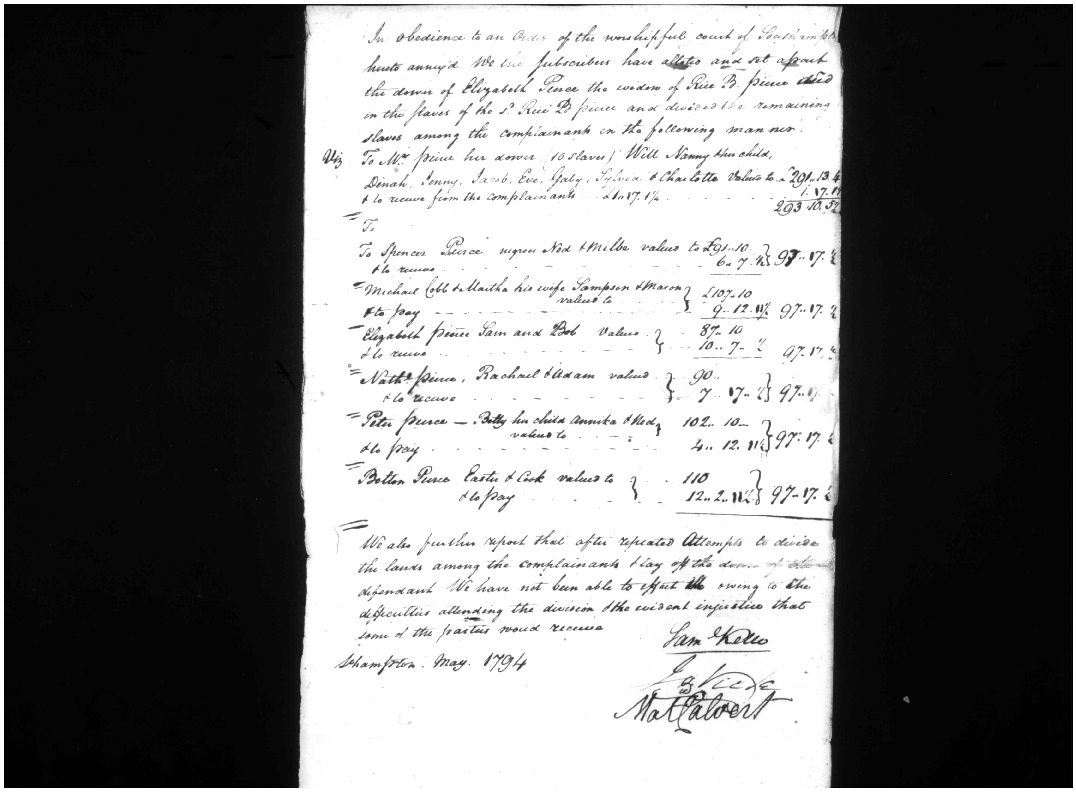 In obedience to an Order of the worshipful court of Southampton
hereto annex'd We the Subscribers have alloted and set apart
the dower of Elizabeth Pierce the widow of Rice B. pierce decd
in the slaves of the sd. Rice B pierce and divided the remaining
slaves among the complainants in the following manner.
Viz To Mrs. pierce her dower (10 slaves) Will Nanny & her child,
Dinah, Jenny, Jacob, Eve, Gaby, Sylvia & Charlotte valued to £291..13.4
& to receive from the complainants £1..17.1½ 1.17.1½
293.10.5½
To
To Spencer Pierce negroes Ned & Milbe valued to £91..10. } 97..17.½
& to receive 6..7.½
Michael Cobb & Martha his wife Sampson & Mason } £107..10
valued to
& to pay 9..12.11½ 97..17.½
Elizabeth pierce Sam and Bob Valued } 87..10
& to receive 10..7..½ 97..17.½
Nathl. pierce, Rachael & Adam valued } 90..
& to receive 7..17..½ } 97..17.
Peter pierce — Betty her child Annika & Ned } 102..10—
valued to
& to pay 4..12.11½ } 97..17.½
Bolton Pierce Easter & Cook valued to } 110
& to pay 12..2..11½ } 97..17.½
We also further report that after repeated Attempts to divide
the lands among the complainants & lay off the dower of the
defendant We have not been able to effect it owing to the
difficulties attending the division & the evident injustice that
some of the parties woud receive
Sohampton. May. 1794
Sam Kello
Mat Calvert